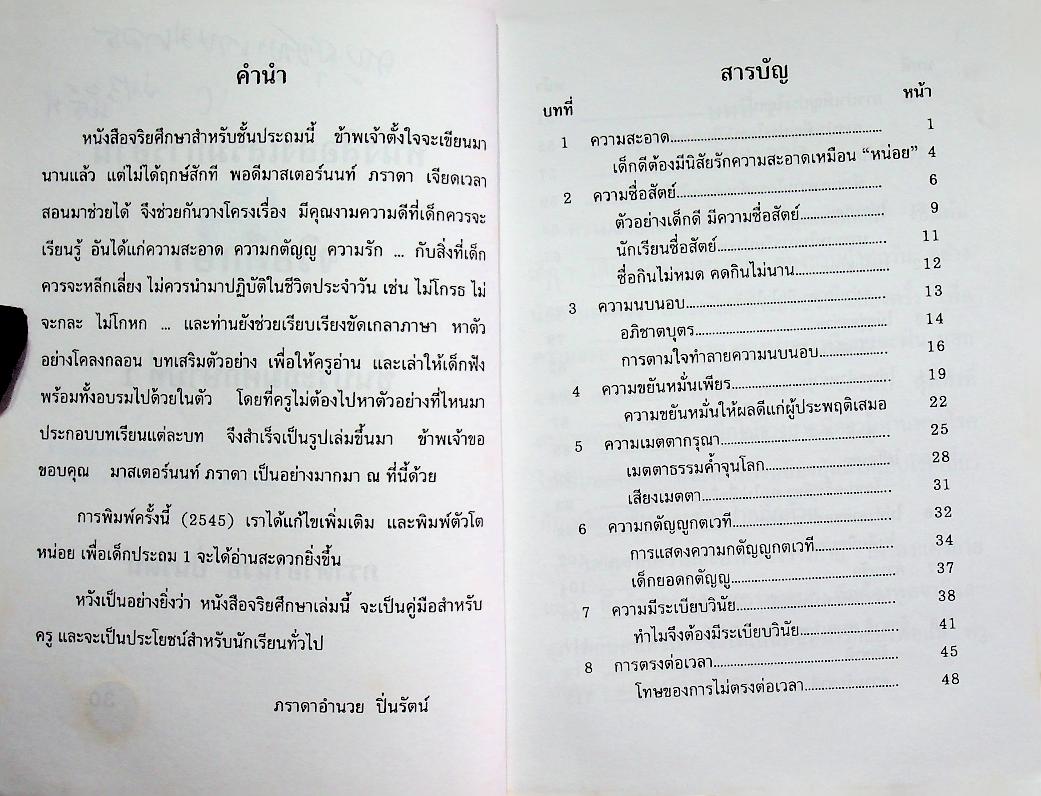 คำนำ
หนังสือจริยศึกษาสำหรับชั้นประถมนี้ ข้าพเจ้าตั้งใจจะเขียนมา
นานแล้ว แต่ไม่ได้ฤกษ์สักที พอดีมาสเตอร์นนท์ ภราดา เจียดเวลา
สอนมาช่วยได้ จึงช่วยกันวางโครงเรื่อง มีคุณงามความดีที่เด็กควรจะ
เรียนรู้ อันได้แก่ความสะอาด ความกตัญญู ความรัก ... กับสิ่งที่เด็ก
ควรจะหลีกเลี่ยง ไม่ควรนำมาปฏิบัติในชีวิตประจำวัน เช่น ไม่โกรธ ไม่
จะกละ ไม่โกหก ... และท่านยังช่วยเรียบเรียงขัดเกลาภาษา หาตัว
อย่างโคลงกลอน บทเสริมตัวอย่าง เพื่อให้ครูอ่าน และเล่าให้เด็กฟัง
พร้อมทั้งอบรมไปด้วยในตัว โดยที่ครูไม่ต้องไปหาตัวอย่างที่ไหนมา
ประกอบบทเรียนแต่ละบท จึงสำเร็จเป็นรูปเล่มขึ้นมา ข้าพเจ้าขอ
ขอบคุณ มาสเตอร์นนท์ ภราดา เป็นอย่างมากมา ณ ที่นี้ด้วย
การพิมพ์ครั้งนี้ (2545) เราได้แก้ไขเพิ่มเติม และพิมพ์ตัวโต
หน่อย เพื่อเด็กประถม 1 จะได้อ่านสะดวกยิ่งขึ้น
หวังเป็นอย่างยิ่งว่า หนังสือจริยศึกษาเล่มนี้ จะเป็นคู่มือสำหรับ
ครู และจะเป็นประโยชน์สำหรับนักเรียนทั่วไป
ภราดาอำนวย ปิ่นรัตน์
สารบัญ
บทที่ หน้า
1 ความสะอาด 1
เด็กดีต้องมีนิสัยรักความสะอาดเหมือน “หน่อย” 4
2 ความซื่อสัตย์ 6
ตัวอย่างเด็กดี มีความซื่อสัตย์ 9
นักเรียนซื่อสัตย์ 11
ซื่อกินไม่หมด คดกินไม่นาน 12
3 ความนบนอบ 13
อภิชาตบุตร 14
การตามใจทำลายความนบนอบ 16
4 ความขยันหมั่นเพียร 19
ความขยันหมั่นให้ผลดีแก่ผู้ประพฤติเสมอ 22
5 ความเมตตากรุณา 25
เมตตาธรรมค้ำจุนโลก 28
เสียงเมตตา 31
6 ความกตัญญูกตเวที 32
การแสดงความกตัญญูกตเวที 34
เด็กยอดกตัญญู 37
7 ความมีระเบียบวินัย 38
ทำไมจึงต้องมีระเบียบวินัย 41
8 การตรงต่อเวลา 45
โทษของการไม่ตรงต่อเวลา 48